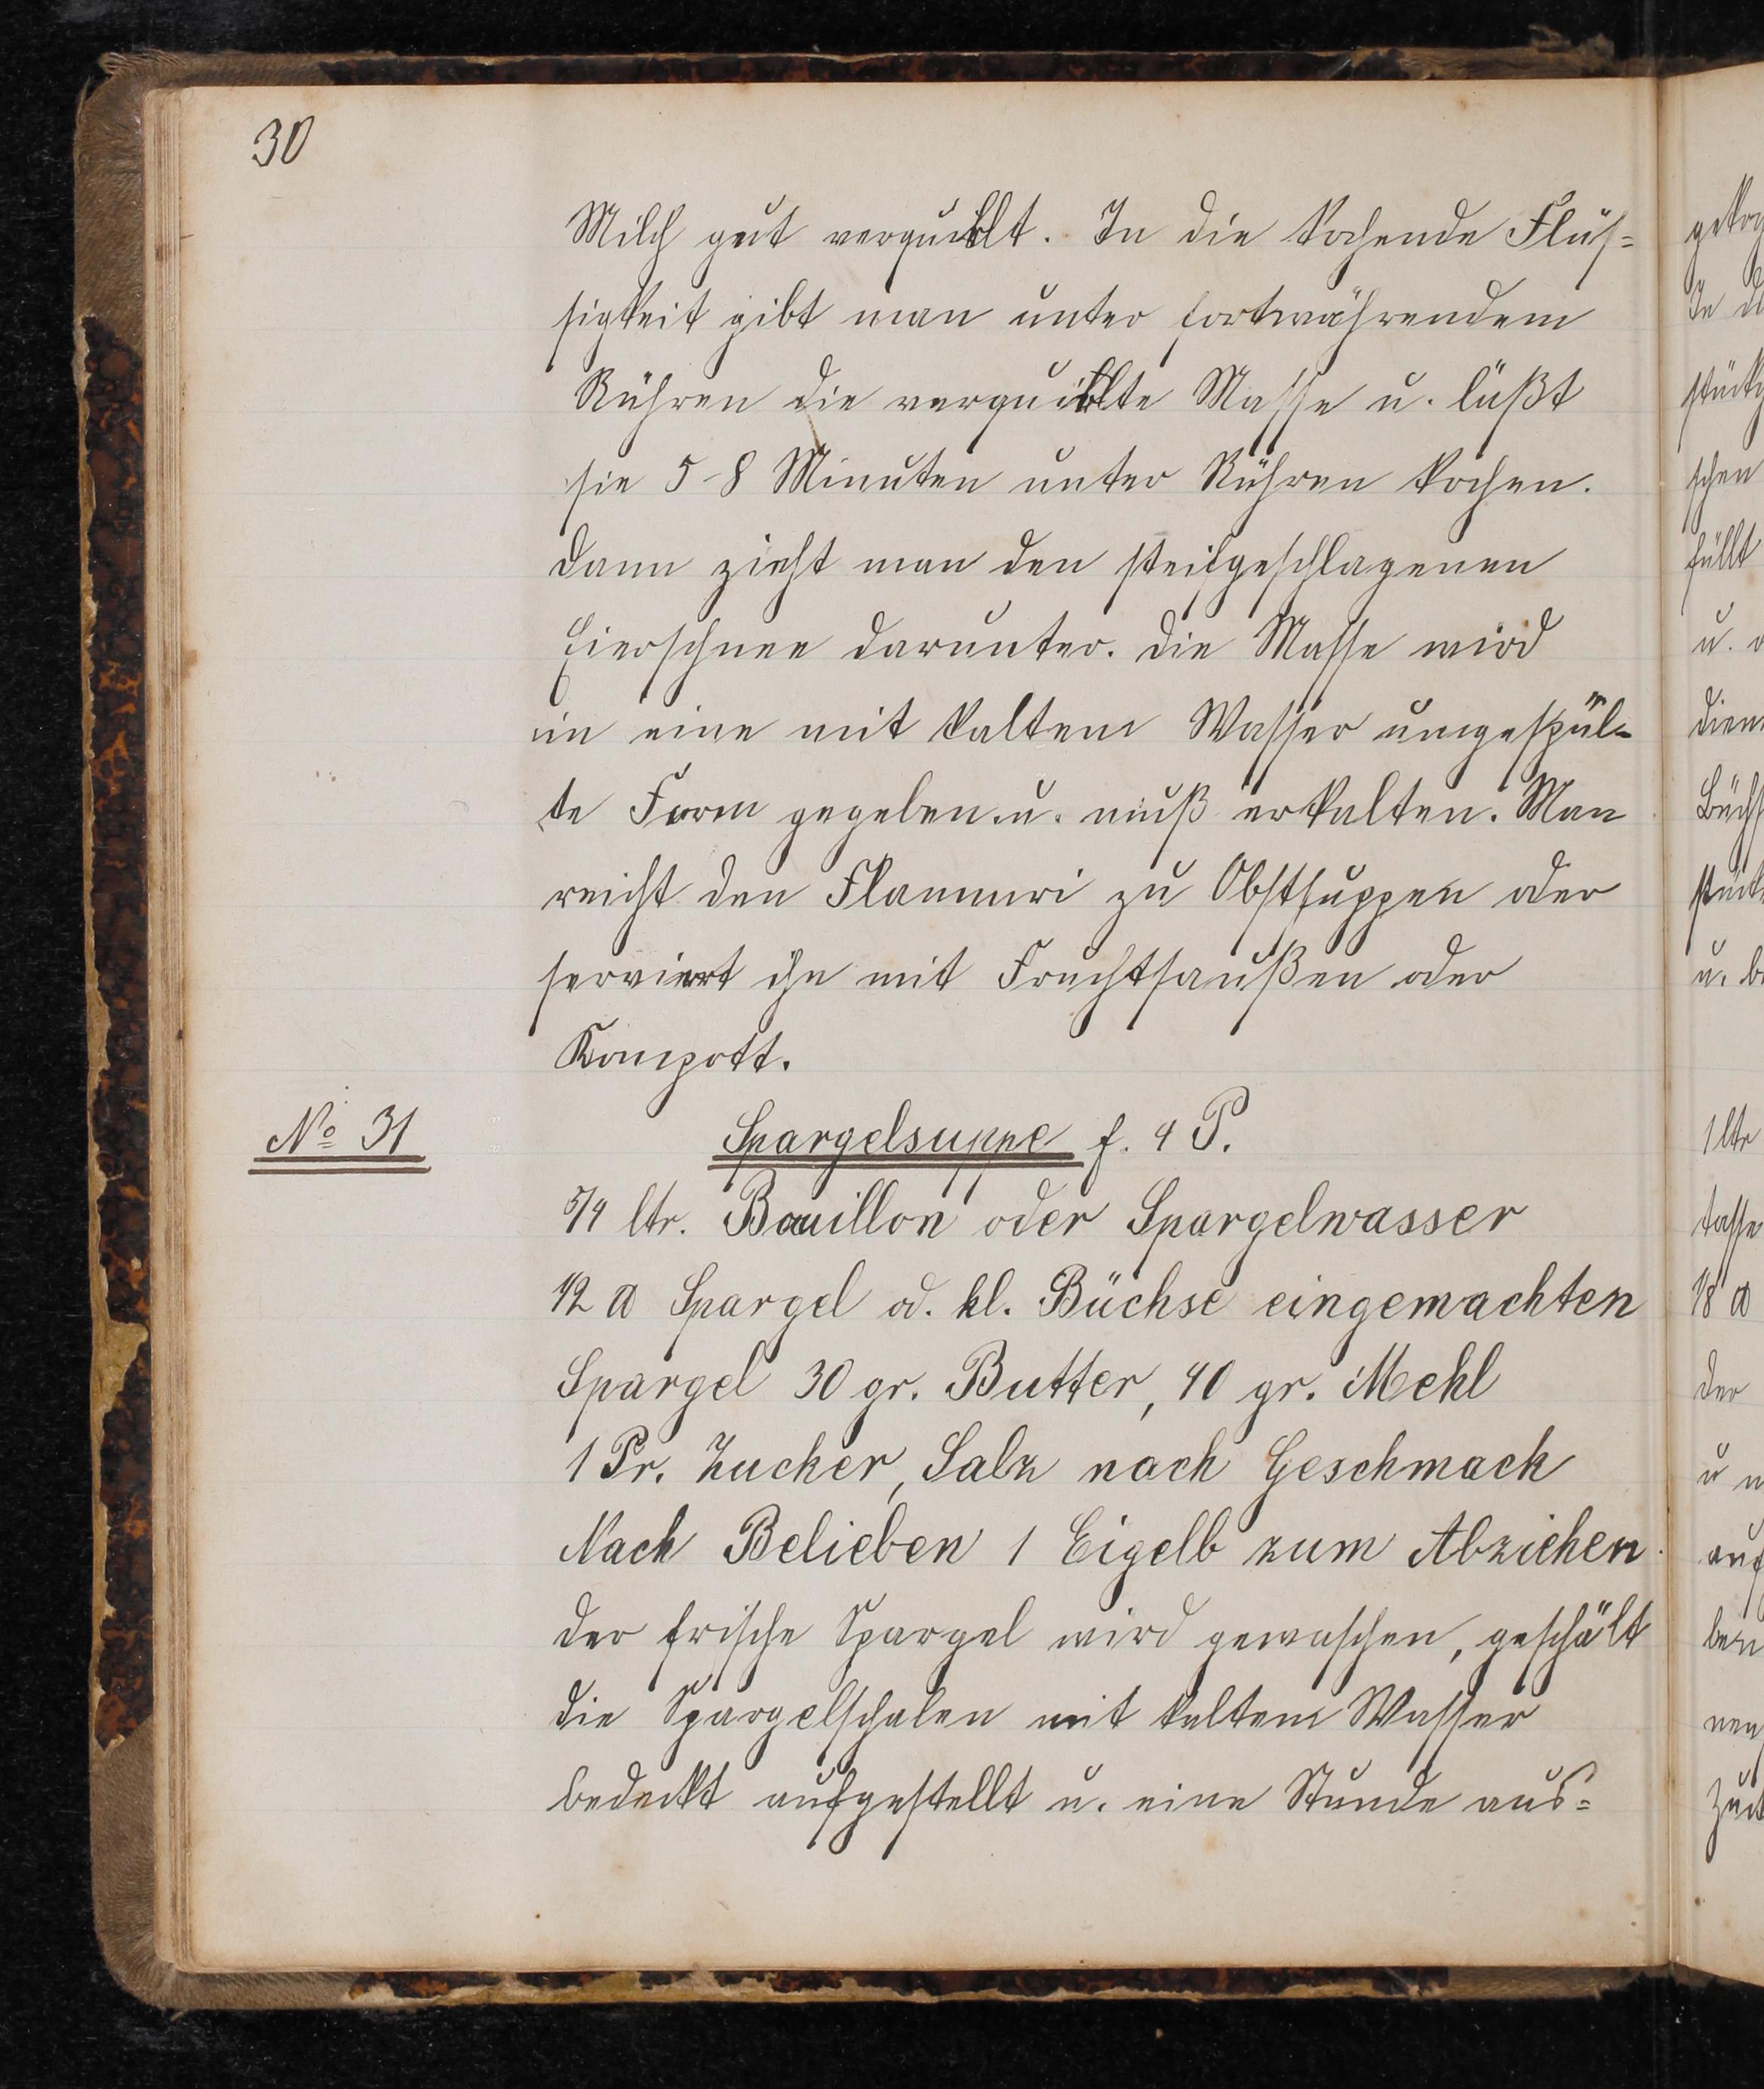 30
Milch gut verquirlt. In die kochende Flüs=
sigkeit gibt man unter fortwährendem
Rühren die verquirlte Masse u. läßt
sie 5-8 Minuten unter Rühren kochen.
Dann zieht man den steifgeschlagenen
Eierschnee darunter. Die Masse wird
in eine mit kaltem Wasser umgespül-
te Form gegeben u. muß erkalten. Man
reicht den Flammri zu Obstsuppen oder
serviert ihn mit Fruchtsaußen oder
Kompott.
No 31
Spargelsuppe f. 4 P.
5/4 ltr. Bouillon oder Spargelwasser
1/2 ℔ Spargel od. kl. Büchse eingemachten
Spargel 30 gr. Butter, 40 gr. Mehl
1 Pr. Zucker, Salz nach Geschmack
Nach Belieben 1 Eigelb zum Abziehen.
Der frische Spargel wird gewaschen, geschält
die Spargelschalen mit kaltem Wasser
bedeckt aufgestellt u. eine Stunde aus=
schen
füllt
u.
1 ltr
tasse
1/8 ℔
der
u